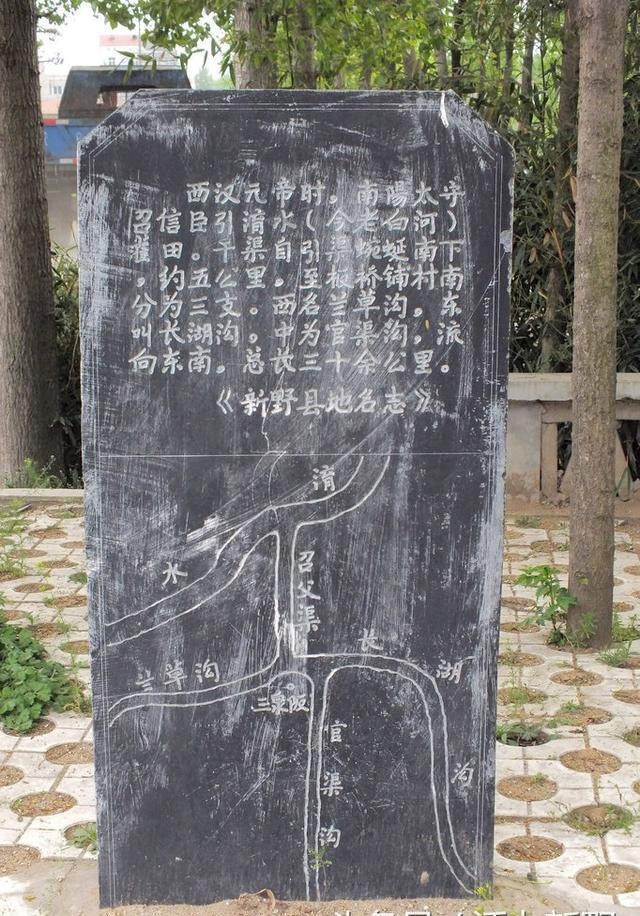 西汉元帝时。南陽太守
召信臣引淯水(今老白河)
灌田。干渠自引渠蜿蜒南下
。约五公里。至板桥铺村南
分为三支。西名兰草沟,东
叫长湖沟。中为官渠沟,流
向东南。总长三十余公里。
《新野县地名志》
淯
水
召父渠
长湖沟
兰草沟
三泉阪
官渠沟